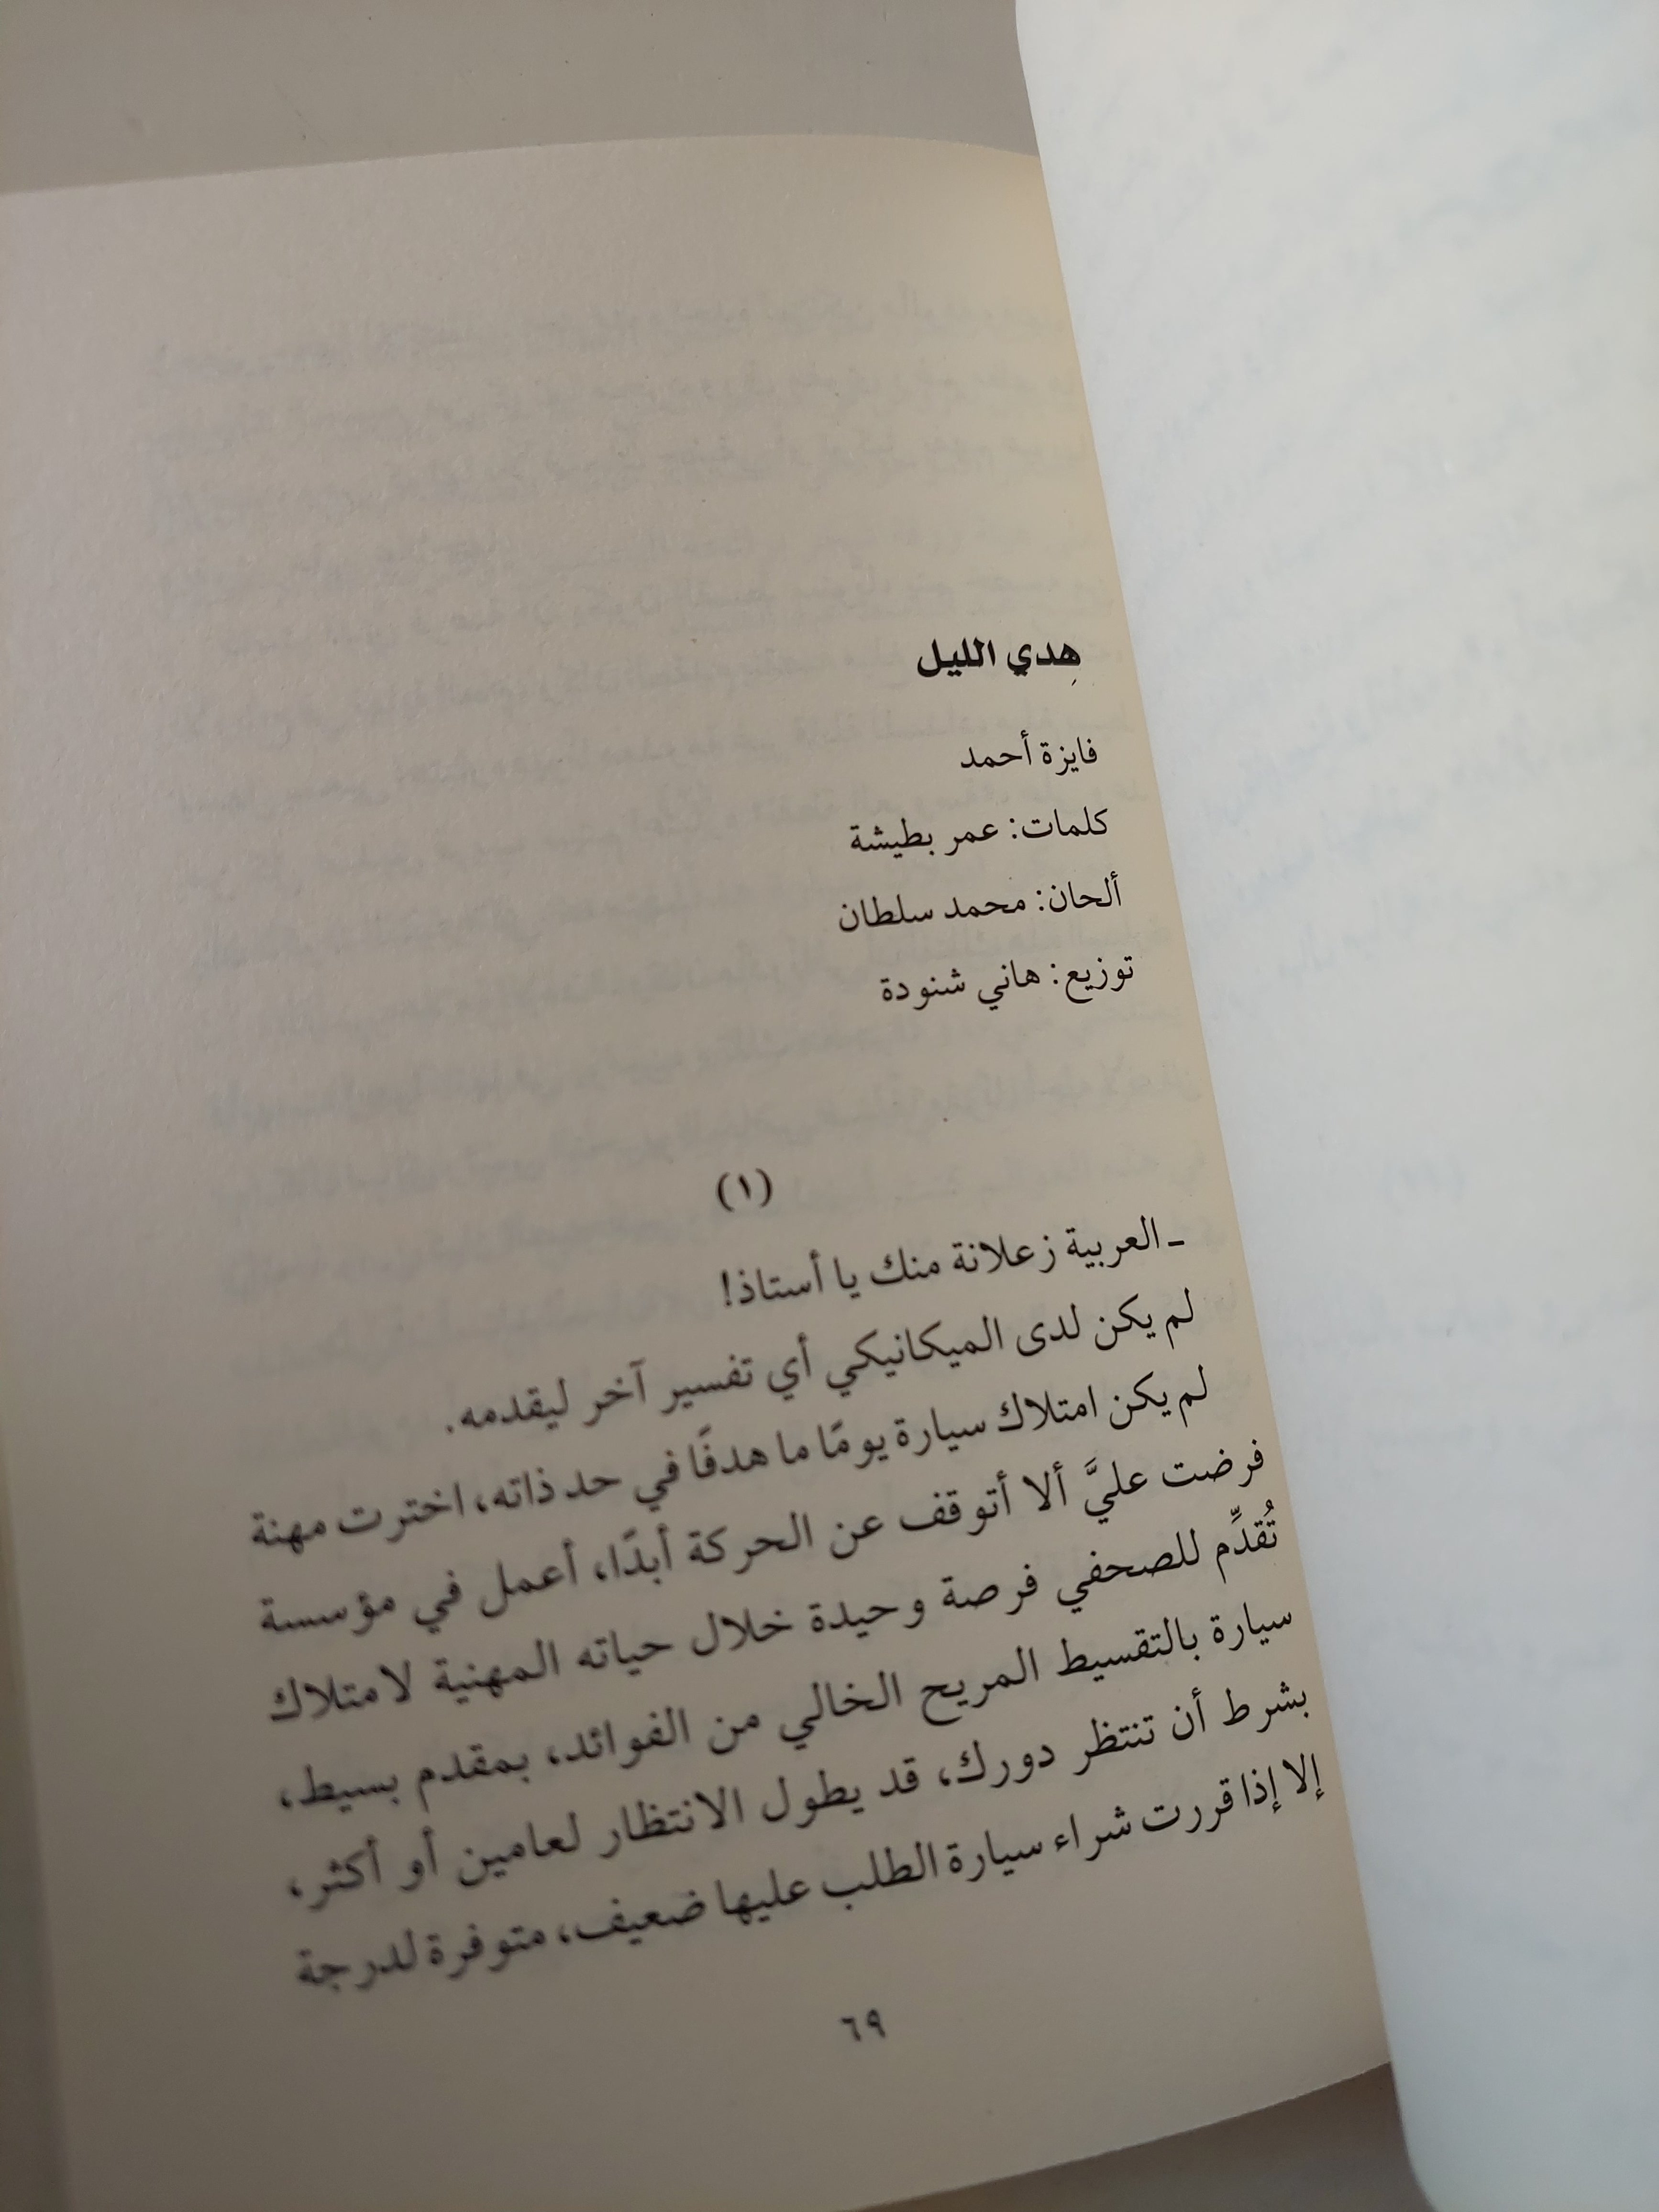 هِدي الليل
فايزة أحمد
كلمات: عمر بطيشة
ألحان: محمد سلطان
توزيع: هاني شنودة
(١)
ـ العربية زعلانة منك يا أستاذ!
لم يكن لدى الميكانيكي أي تفسير آخر ليقدمه.
لم يكن امتلاك سيارة يومًا ما هدفًا في حد ذاته، اخترت مهنة
فرضت عليَّ ألا أتوقف عن الحركة أبدًا، أعمل في مؤسسة
تُقدِّم للصحفي فرصة وحيدة خلال حياته المهنية لامتلاك
سيارة بالتقسيط المريح الخالي من الفوائد، بمقدم بسيط،
بشرط أن تنتظر دورك، قد يطول الانتظار لعامين أو أكثر،
إلا إذا قررت شراء سيارة الطلب عليها ضعيف، متوفرة لدرجة
٦٩